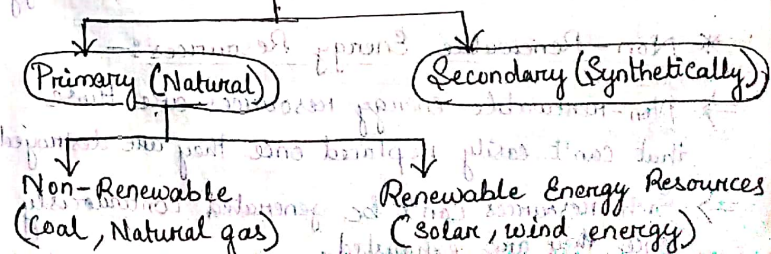 Primary (Natural)
Secondary (Synthetically)
Non-Renewable
(Coal, Natural gas)
Renewable Energy Resources
(solar, wind energy)